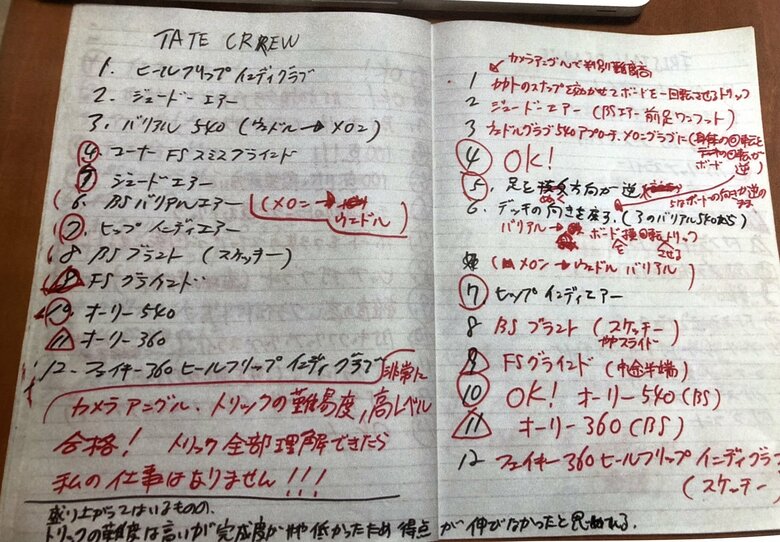 TATE CREW
1. ヒールフリップ インディグラブ
2. ジュードー エアー
3. バリアル 540 (ウェドル → メロン)
④ コーナー FS スミスブラインド
⑤ ジュードエアー
6. BSバリアルエアー (メロン → ウェドル)
⑦ ヒップ インディエアー
8 BS プラント (スケッチー)
9 FSグラインド
⑩ オーリー 540
11 オーリー 360
12. フェイキー360 ヒールフリップ インディグラブ
非常に
カメラアングル、トリックの難易度、高レベル
合格! トリック全部理解できたら
私の仕事はありません!!!
盛り上がってはいるものの、
トリックの難度は高いが完成度がやや低かったため 得点が伸びなかったと思われる。
カメラアングルで判別難度高
1 カカトのスナップを効かせてボードを一回転させるトリック
2 ジュードーエアー (BSエアー 前足ワンフット)
3 ウェドルグラブ540アプローチ、メロングラブに (身体の回転と
ボード の回転が
逆)
④ OK!
⑤. 足と 方向が逆
ぬく
5はボードの向きが逆の
6. デッキの向きを戻る. (3のバリアル540から)
バリアル → ボード 回転 トリック
を させる
(メロン → ウェドル バリアル)
⑦ ヒップ インディエアー
8 BS プラント (スケッチー
ややスライド)
9 FSグラインド (中途半端)
⑩ OK! オーリー 540 (BS)
11 オーリー 360 (BS)
12 フェイキー360ヒールフリップ インディグラブ
(スケッチー